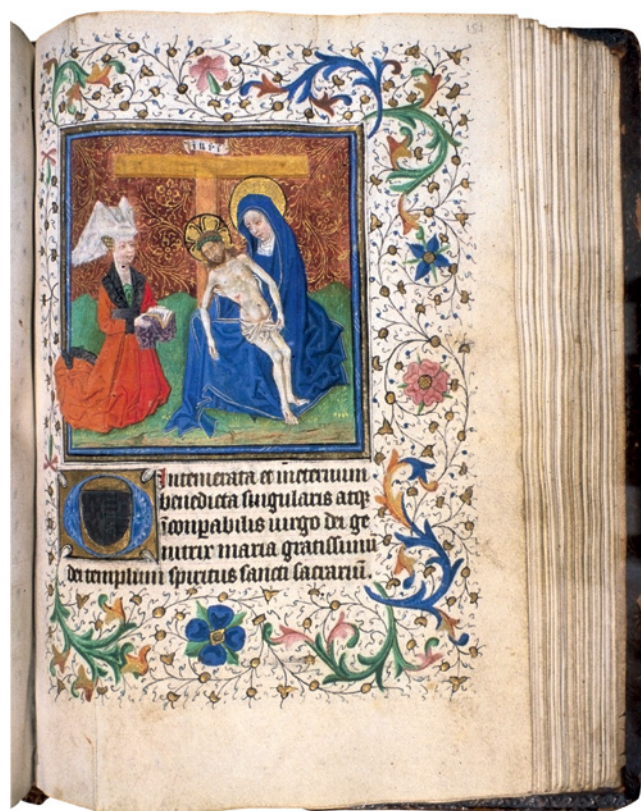 inri
O Intemerata et ineternum
benedicta singularis atqȝ
īconpabilis uirgo dei ge
nitrix maria gratissimū
dei templum spiritus sancti sacrariū.